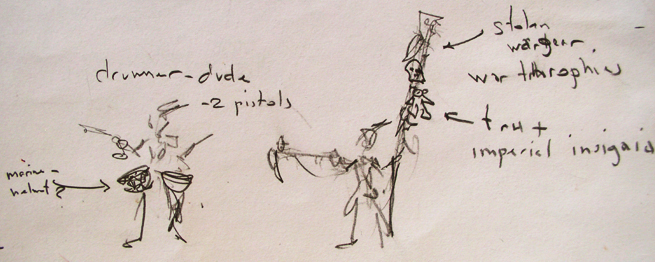 drummer-dude
-2 pistols
marine-
helmets
stolen
wargear.
war throphies
tru +
imperial insignia